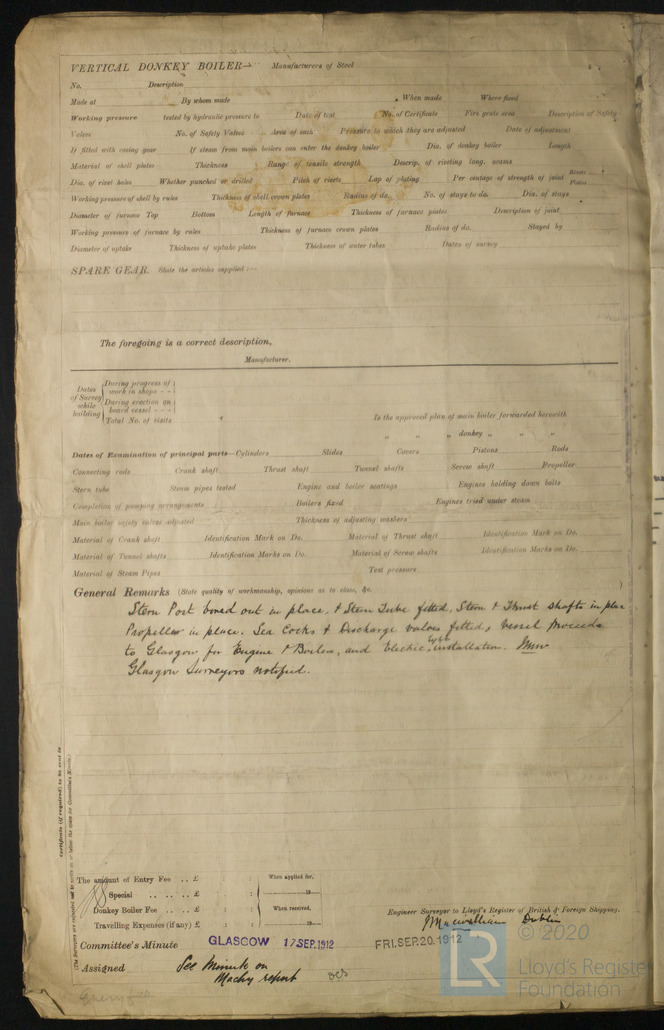 VERTICAL DONKEY BOILER— Manufacturers of Steel
No. Description
Made at By whom made When made Where fixed
Working pressure tested by hydraulic pressure to Date of test No. of Certificate Fire grate area Description of Safety
Valves No. of Safety Valves Area of each Pressure to which they are adjusted Date of adjustment
If fitted with easing gear If steam from main boilers can enter the donkey boiler Dia. of donkey boiler Length
Material of shell plates Thickness Range of tensile strength Descrip. of riveting long. seams
Dia. of rivet holes Whether punched or drilled Pitch of rivets Lap of plating Per centage of strength of joint Rivets Plates
Working pressure of shell by rules Thickness of shell crown plates Radius of do. No. of stays to do. Dia. of stays
Diameter of furnace Top Bottom Length of furnace Thickness of furnace plates Description of joint
Working pressure of furnace by rules Thickness of furnace crown plates Radius of do. Stayed by
Diameter of uptake Thickness of uptake plates Thickness of water tubes Dates of survey
SPARE GEAR. State the articles supplied:—
The foregoing is a correct description,
Manufacturer.
Dates of Survey while building
During progress of work in shops - -
During erection on board vessel - - -
Total No. of visits
Is the approved plan of main boiler forwarded herewith
" " " donkey " " "
Dates of Examination of principal parts—Cylinders Slides Covers Pistons Rods
Connecting rods Crank shaft Thrust shaft Tunnel shafts Screw shaft Propeller
Stern tube Steam pipes tested Engine and boiler seatings Engines holding down bolts
Completion of pumping arrangements Boilers fixed Engines tried under steam
Main boiler safety valves adjusted Thickness of adjusting washers
Material of Crank shaft Identification Mark on Do. Material of Thrust shaft Identification Mark on Do.
Material of Tunnel shafts Identification Marks on Do. Material of Screw shafts Identification Marks on Do.
Material of Steam Pipes Test pressure
General Remarks (State quality of workmanship, opinions as to class, &c.
Stern Post bored out in place, & Stern Tube fitted, Stern & Thrust shafts in place
Propeller in place. Sea Cocks & Discharge valves fitted, Vessel proceeds
to Glasgow for Engine & Boilers, and Electric light installation.
Glasgow Surveyors notified.
Certificate (if required) to be sent to
(The Surveyors are requested not to write on or below the space for Committee's Minute.)
The amount of Entry Fee .. £ : : When applied for,
Special .. .. .. £ : : 19
Donkey Boiler Fee .. .. £ : : When received,
Travelling Expenses (if any) £ : : 19
Engineer Surveyor to Lloyd's Register of British & Foreign Shipping.
Dublin
Committee's Minute GLASGOW 17 SEP. 1912 FRI. SEP. 20. 1912
Assigned See Minute on
Machy report
LR © 2020
Lloyd's Register
Foundation